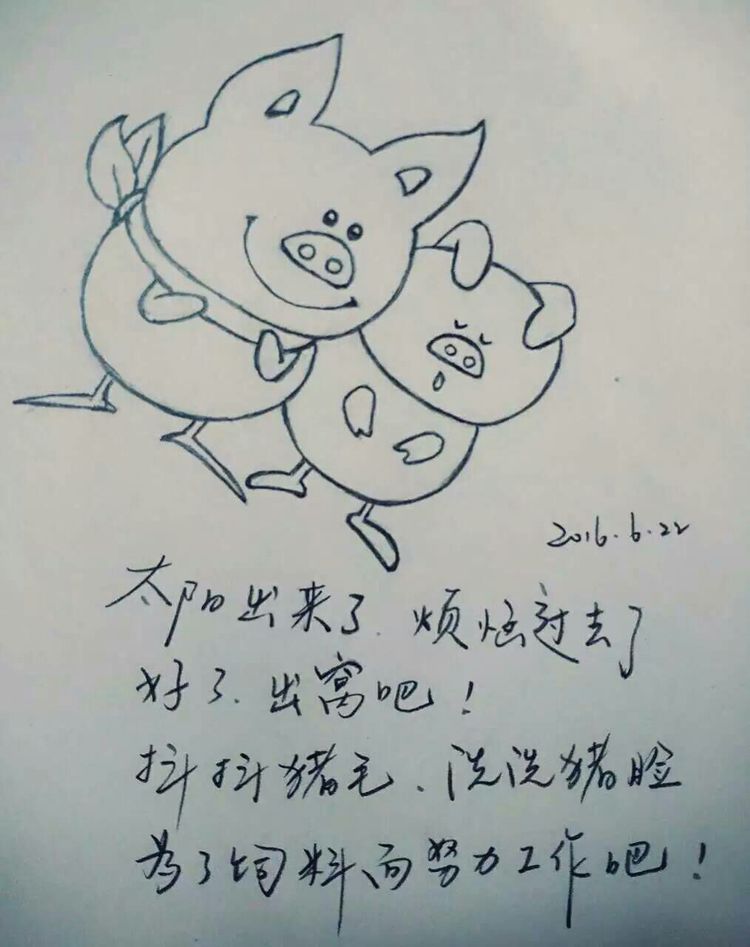 2016.6.22
太阳出来了.烦恼过去了
好了.出窝吧！
抖抖猪毛、洗洗猪脸
为了饲料而努力工作吧！